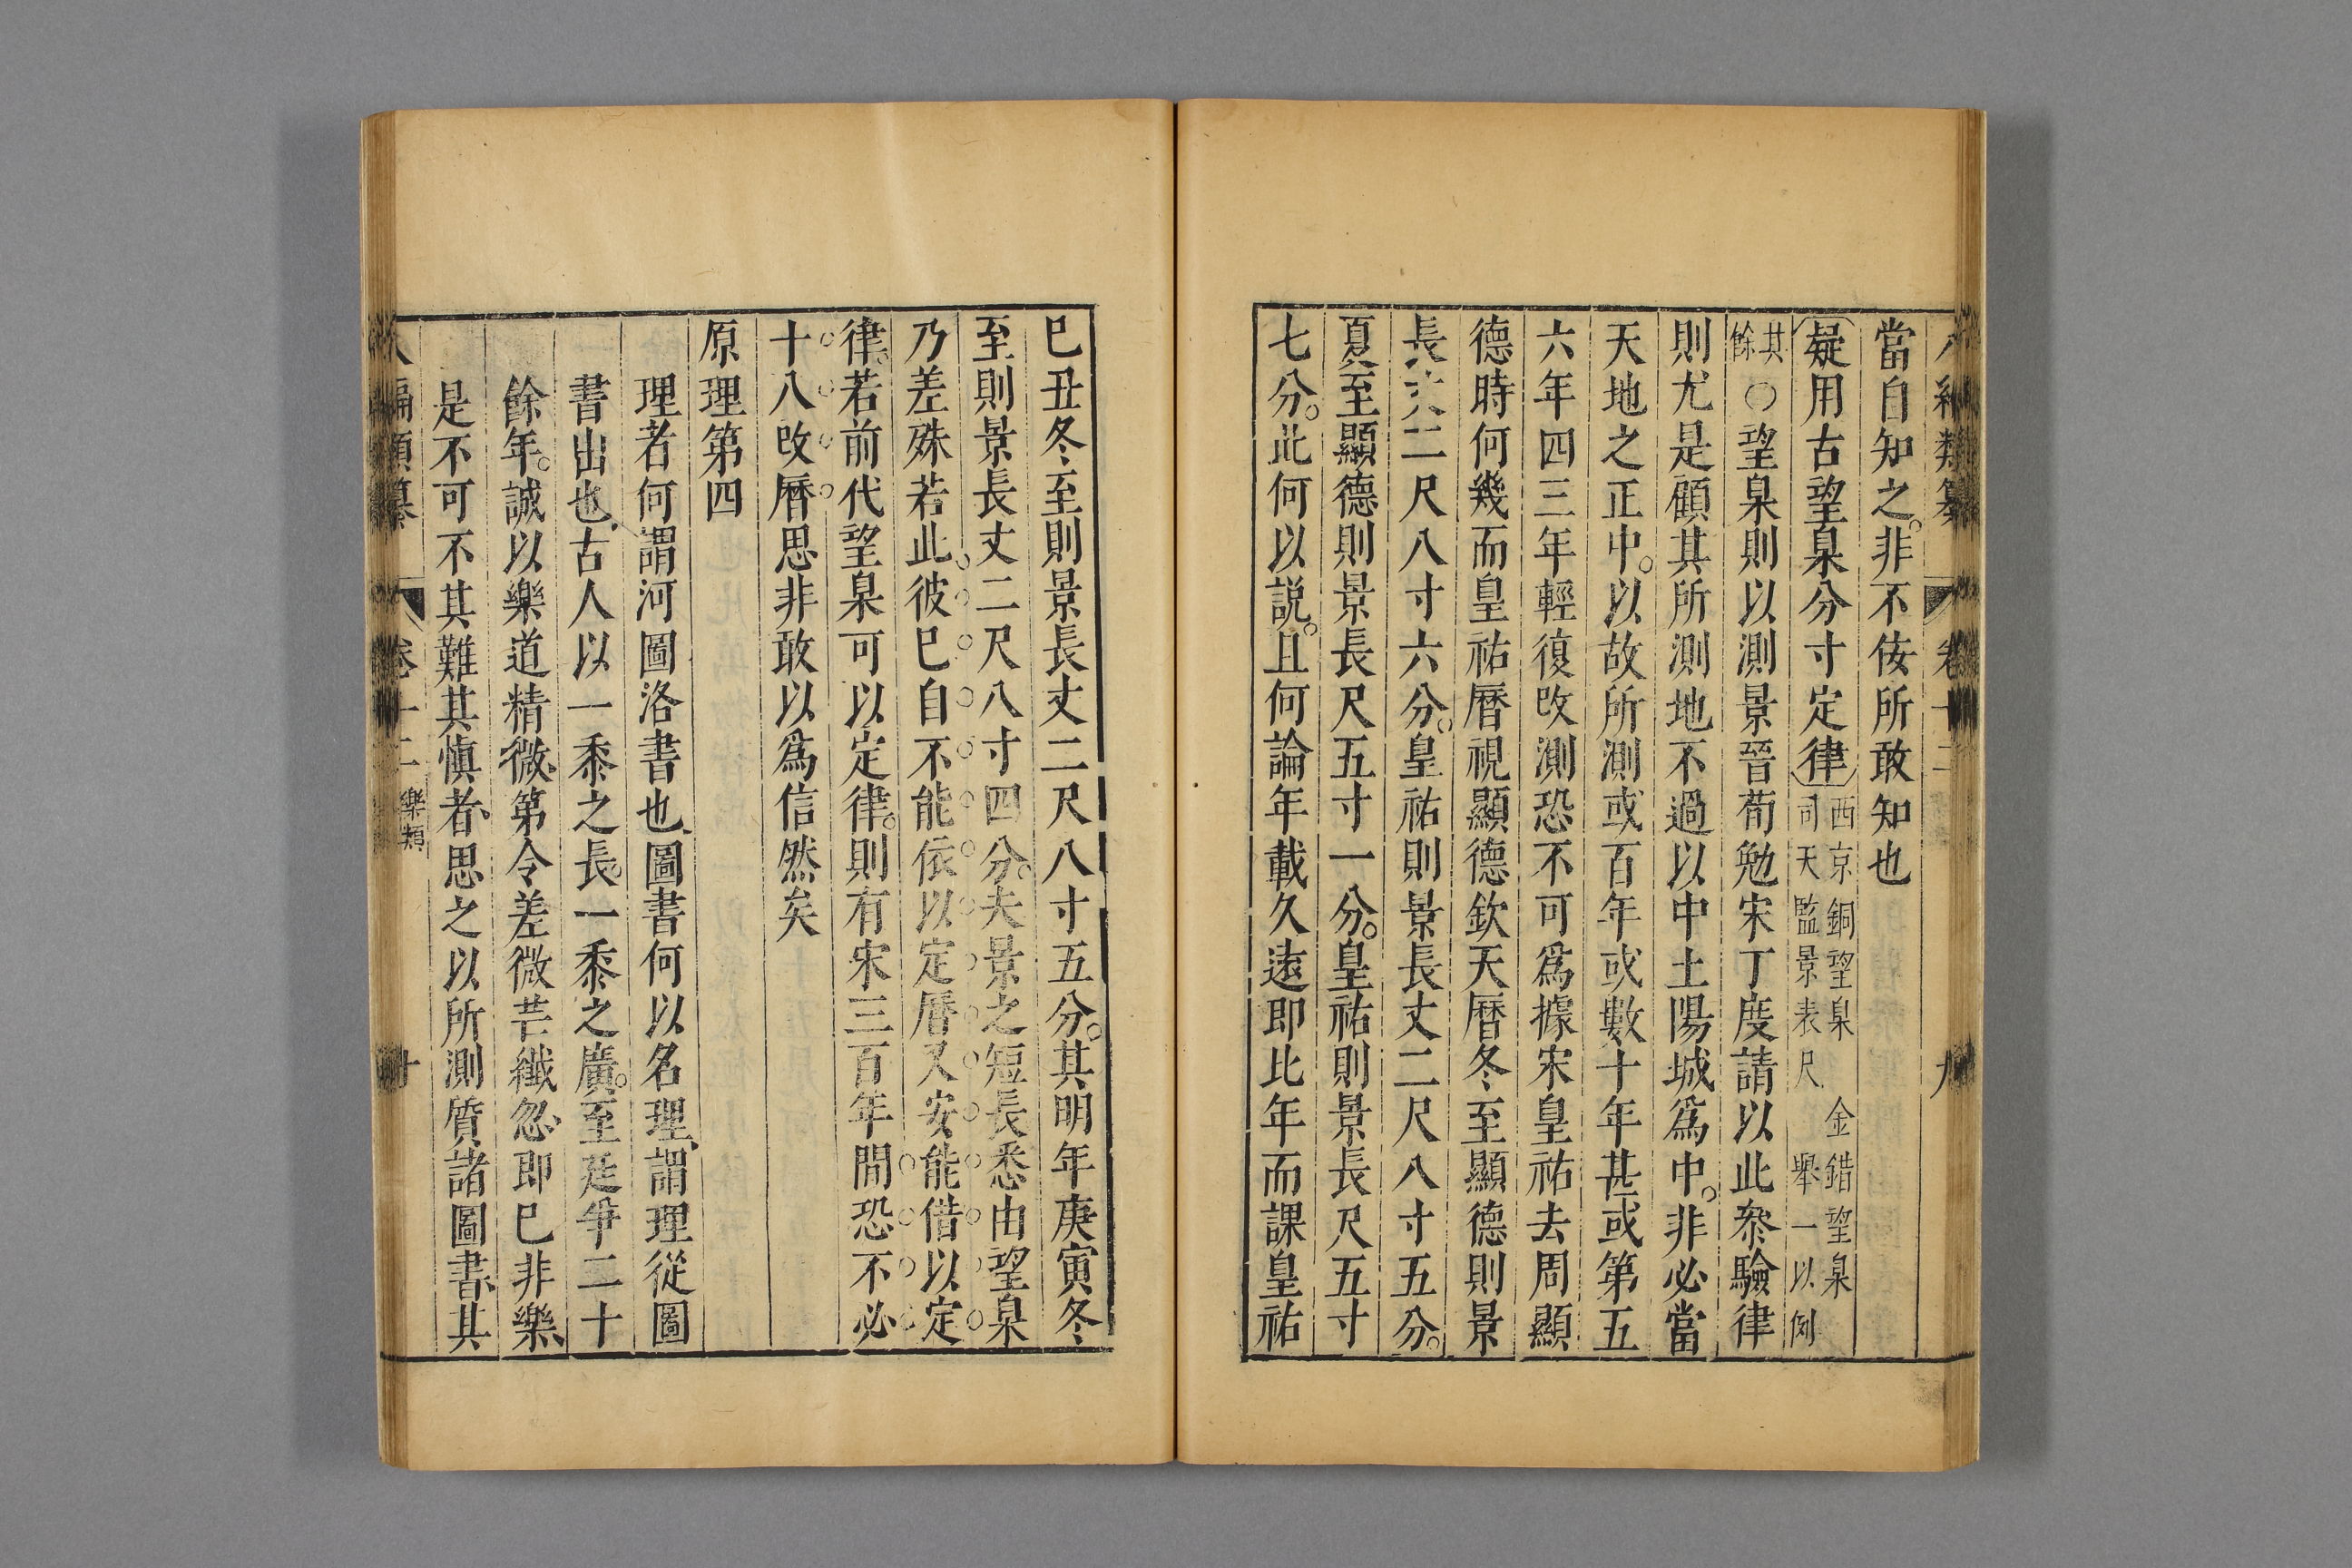 編類纂 卷十二 九
當自知之非不佞所敢知也
疑用古望臬分寸定律 西京銅望臬 金錯望臬
司天監景表尺 舉一以例
其餘 ○望臬則以測景晉荀勉宋丁度請以此叅驗律
則尤是顧其所測地不過以中土陽城爲中非必當
天地之正中以故所測或百年或數十年甚或第五
六年四三年輕復改測恐不可爲據宋皇祐去周顯
德時何幾而皇祐曆視顯德欽天曆冬至顯德則景
長丈二尺八寸六分皇祐則景長丈二尺八寸五分
夏至顯德則景長尺五寸一分皇祐則景長尺五寸
七分此何以説且何論年載久遠即比年而課皇祐
巳丑冬至則景長丈二尺八寸五分其明年庚寅冬
至則景長丈二尺八寸四分夫景之短長悉由望臬
乃差殊若此彼巳自不能依以定曆又安能借以定
律若前代望臬可以定律則有宋三百年間恐不必
十八改曆思非敢以爲信然矣
原理第四
理者何謂河圖洛書也圖書何以名理謂理從圖
書出也古人以一黍之長一黍之廣至廷爭二十
餘年誠以樂道精微第令差微芒纖忽即巳非樂
是不可不其難其愼者思之以所測質諸圖書其
編類纂 卷十二 樂類 十